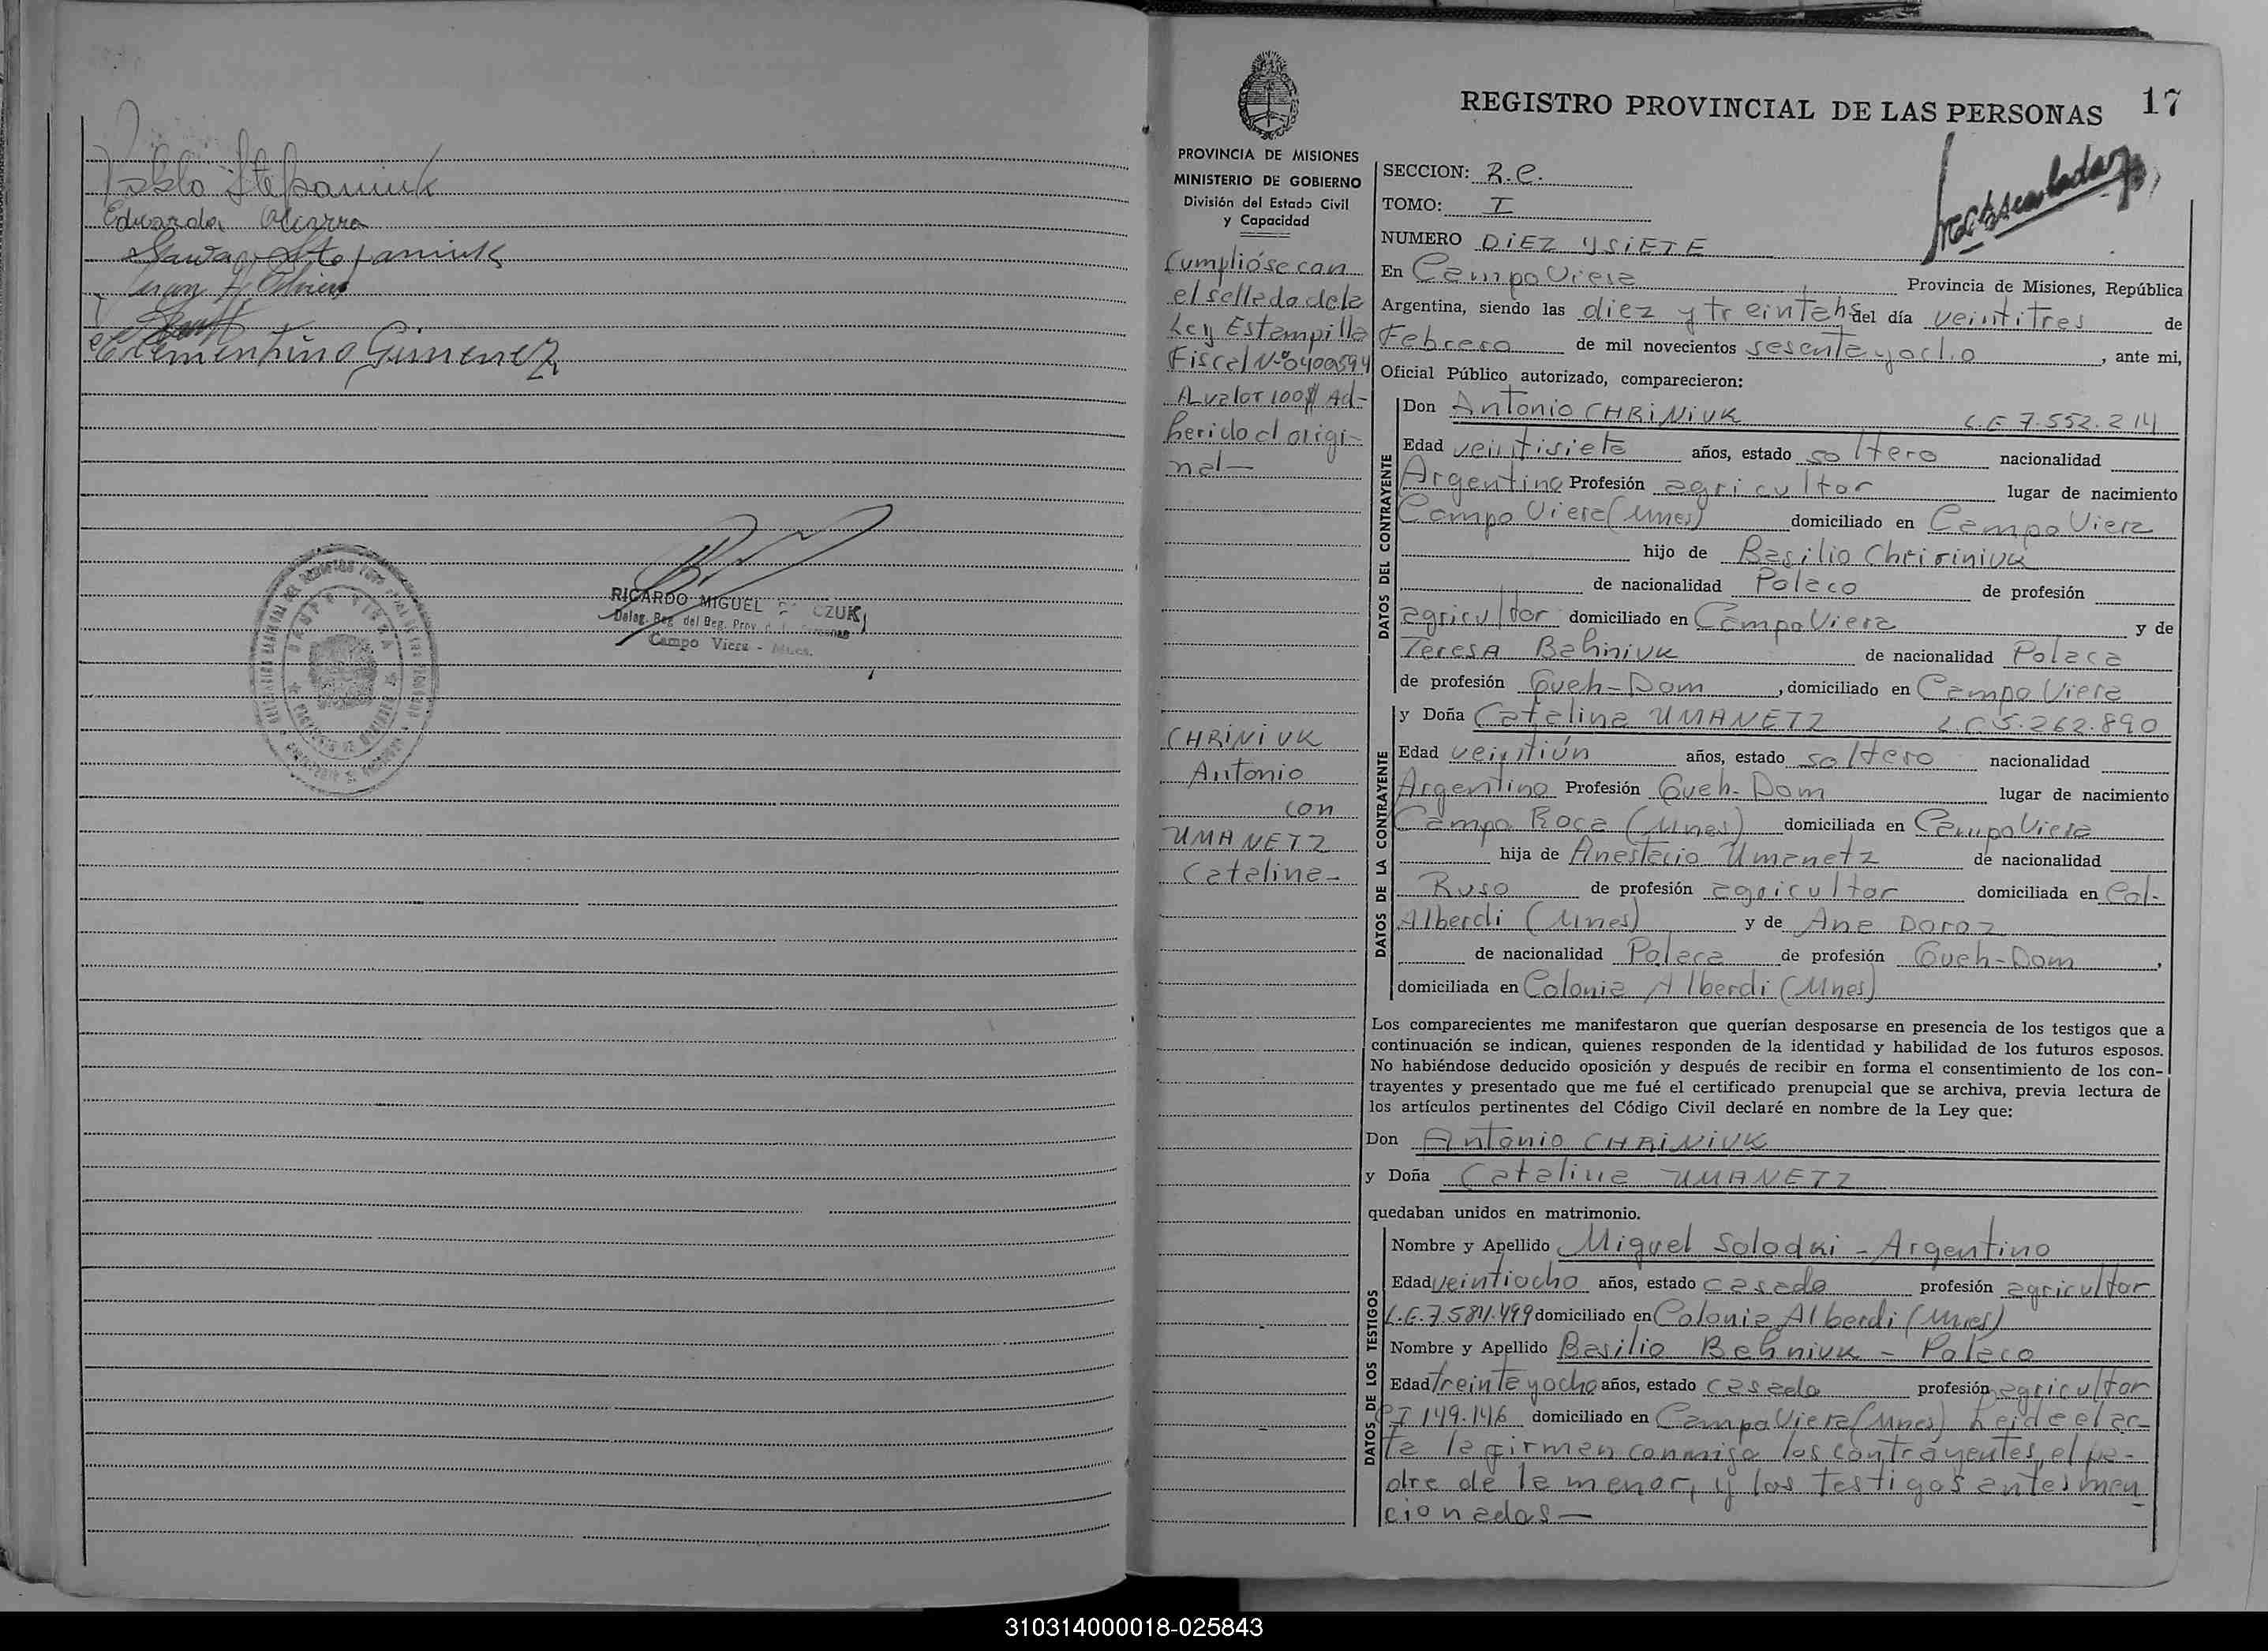 Pablo Stepaniuk
Eduardo
Stepaniuk
Clementino Gimenez
RICARDO MIGUEL CZUK
Deleg. Reg. del Reg. Prov.
Campo Viera - Mnes.
REGISTRO PROVINCIAL DE LAS PERSONAS 17
PROVINCIA DE MISIONES
MINISTERIO DE GOBIERNO
División del Estado Civil
y Capacidad
Cumplióse con
el sellado de la
Ley Estampilla
Fiscal Nº0400594
A valor 100$ Ad-
herido al origi-
nal—
CHRINIUK
Antonio
con
UMANETZ
Catalina-
SECCION: R.C.
TOMO: I
NUMERO DIEZ y SIETE
En Campo Viera Provincia de Misiones, República
Argentina, siendo las diez y treinta hs del día veintitres de
Febrero de mil novecientos sesenta y ocho, ante mi,
Oficial Público autorizado, comparecieron:
DATOS DEL CONTRAYENTE
Don Antonio CHRINIUK L.E 7.552.214
Edad veintisiete años, estado soltero nacionalidad
Argentino Profesión agricultor lugar de nacimiento
Campo Viera (Mnes) domiciliado en Campo Viera
hijo de Basilio Chririniuk
de nacionalidad Polaco de profesión
agricultor domiciliado en Campo Viera y de
Teresa Bahniuk de nacionalidad Polaca
de profesión Queh-Dom, domiciliado en Campo Viera
DATOS DE LA CONTRAYENTE
y Doña Catalina UMANETZ L.C 5.262.890
Edad veintiún años, estado soltero nacionalidad
Argentina Profesión Queh-Dom lugar de nacimiento
Campo Roca (Mnes) domiciliada en Campo Viera
hija de Anastacio Umanetz de nacionalidad
Ruso de profesión agricultor domiciliada en Col-
Alberdi (Mnes) y de Ana Doroz
de nacionalidad Polaca de profesión Queh-Dom,
domiciliada en Colonia Alberdi (Mnes)
Los comparecientes me manifestaron que querían desposarse en presencia de los testigos que a
continuación se indican, quienes responden de la identidad y habilidad de los futuros esposos.
No habiéndose deducido oposición y después de recibir en forma el consentimiento de los con-
trayentes y presentado que me fué el certificado prenupcial que se archiva, previa lectura de
los artículos pertinentes del Código Civil declaré en nombre de la Ley que:
Don Antonio CHRINIUK
y Doña Catalina UMANETZ
quedaban unidos en matrimonio.
DATOS DE LOS TESTIGOS
Nombre y Apellido Miguel Solodki - Argentino
Edad veintiocho años, estado casado profesión agricultor
L.E.7.584.499 domiciliado en Colonia Alberdi (Mnes)
Nombre y Apellido Basilio Bahniuk - Polaco
Edad treinta y ocho años, estado casado profesión agricultor
CI 149.146 domiciliado en Campo Viera (Mnes) Leida el ac-
ta la firman conmigo los contrayentes, el pa-
dre de la menor, y los testigos antes men
cionados—
310314000018-025843